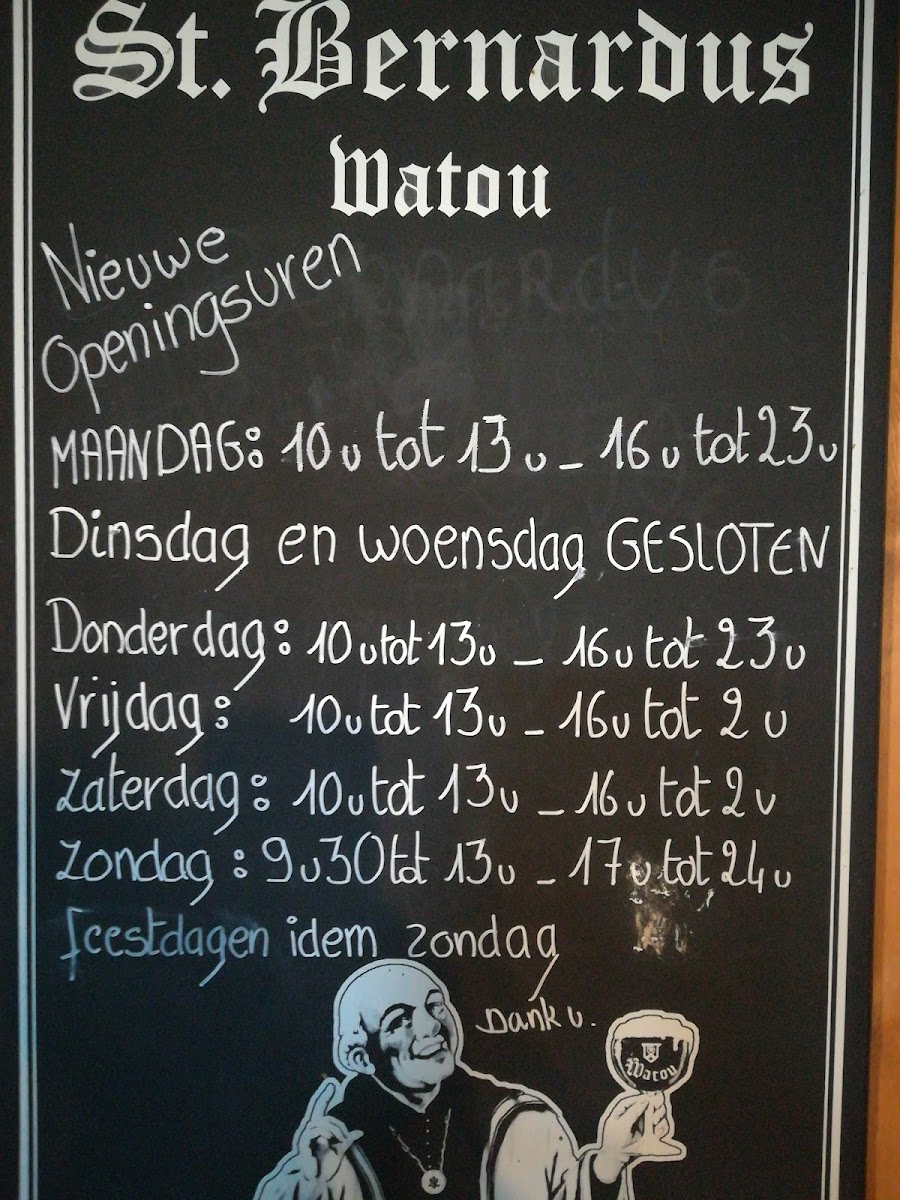 St. Bernardus
Watou
Nieuwe
Openingsuren
MAANDAG: 10u tot 13u - 16u tot 23u
Dinsdag en woensdag GESLOTEN
Donderdag: 10u tot 13u - 16u tot 23u
Vrijdag: 10u tot 13u - 16u tot 2u
Zaterdag: 10u tot 13u - 16u tot 2u
Zondag: 9u30 tot 13u - 17u tot 24u
feestdagen idem zondag
Dank u.
Watou